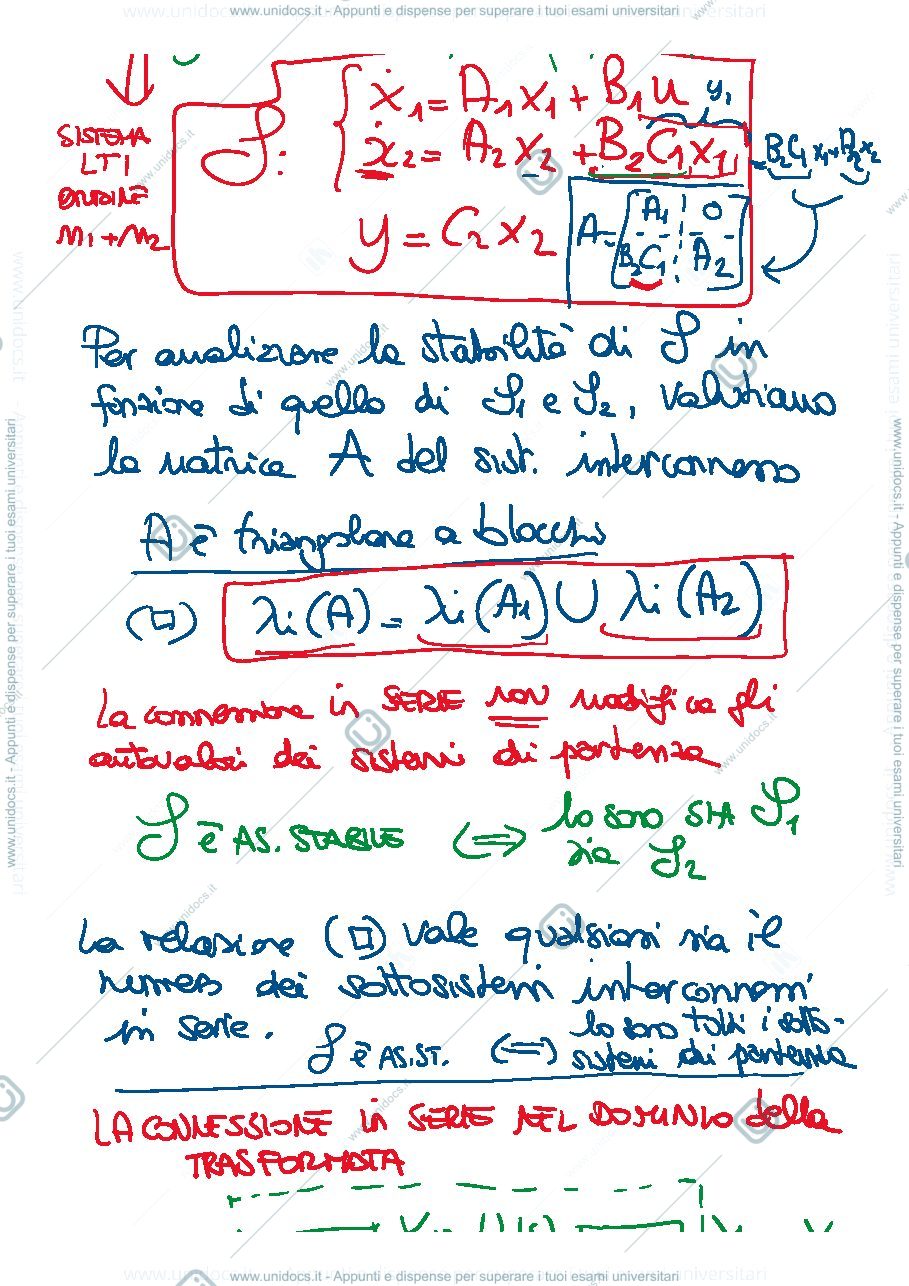 www.unidocs.it - Appunti e dispense per superare i tuoi esami universitari
ẋ₁ = A₁x₁ + B₁u y₁
SISTEMA
LTI
ORDINE
n₁+n₂
S:
ẋ₂ = A₂x₂ + B₂C₁x₁
= B₂C₁x₁ + A₂x₂
y = C₂x₂
A = [A₁ 0
B₂C₁ A₂]
Per analizzare la stabilità di S in
funzione di quello di S₁ e S₂, valutiamo
la matrice A del sist. interconnesso
A è triangolare a blocchi
(□) λi(A) = λi(A₁) ∪ λi(A₂)
La connessione in SERIE NON modifica gli
autovalori dei sistemi di partenza
S è AS. STABILE ⟺ lo sono SIA S₁
sia S₂
La relazione (□) vale qualsiasi sia il
numero dei sottosistemi interconnessi
in serie.
S è AS.ST. ⟺ lo sono tutti i sotto-
sistemi di partenza
LA CONNESSIONE in SERIE NEL DOMINIO della
TRASFORMATA
www.unidocs.it - Appunti e dispense per superare i tuoi esami universitari